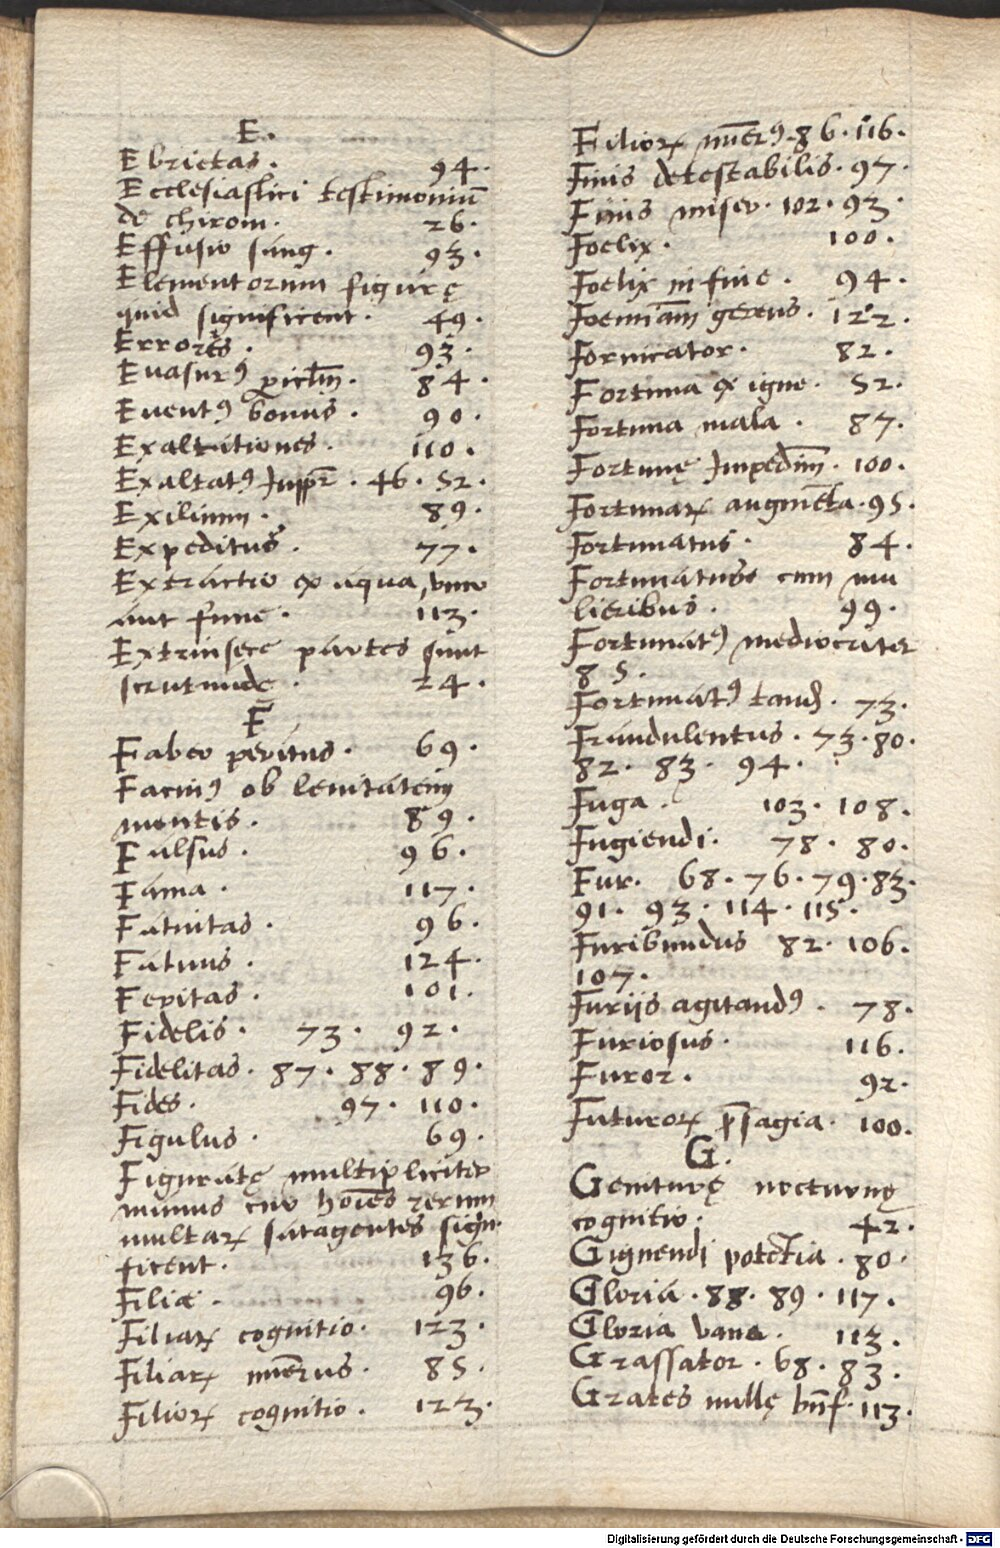 E.
Ebrietas. 94.
Ecclesiastici testimoniū
de chirom. 26.
Effusio sang. 93.
Elementorum figurę
quid significent. 49.
Errores. 93.
Euasurꝰ ꝑiclm̄. 84.
Euentꝰ bonus. 90.
Exaltationes. 110.
Exaltatꝰ 46. 52.
Exilium. 89.
Expeditus. 77.
Extractio ex aqua, vino
aut fune. 113.
Extrinsecę partes sunt
scrutandę. 24.
F
Fabro peritus. 69.
Facinꝰ ob leuitatem
mentis. 89.
Falsus. 96.
Fama. 117.
Fatuitas. 96.
Fatuus. 124.
Feritas. 101.
Fidelis. 73. 92.
Fidelitas. 87. 88. 89.
Fides. 97. 110.
Figulus. 69.
Figuratę multipliciter
manus cur hoīes rerum
multaꝝ satagentes signi
ficent. 136.
Filiæ. 96.
Filiaꝝ cognitio. 123.
Filiaꝝ nūerus. 85.
Filioꝝ cognitio. 123.
Filioꝝ nūerꝰ. 86. 116.
Finis detestabilis. 97.
Finis miser. 102. 93.
Foelix. 100.
Foelix in fine. 94.
Foeminam gerens. 122.
Fornicator. 82.
Fortuna ex igne. 52.
Fortuna mala. 87.
Fortunę Impedim̄. 100.
Fortunaꝝ augmēta. 95.
Fortunatus. 84.
Fortunatus cum mu
lieribus. 99.
Fortunatꝰ mediocriter
85.
Fortunatꝰ tand. 73.
Fraudulentus. 73. 80.
82. 83. 94.
Fuga. 103. 108.
Fugiendi. 78. 80.
Fur. 68. 76. 79. 83.
91. 93. 114. 115.
Furibundus 82. 106.
107.
Furijs agitandꝰ. 78.
Furiosus. 116.
Furor. 92.
Futuroꝝ p̄sagia. 100.
G.
Geniturę nocturnę
cognitio. 42.
Gignendi potētia. 80.
Gloria. 88. 89. 117.
Gloria vana. 113.
Grassator. 68. 83.
Grates nullę bn̄f. 113.
Digitalisierung gefördert durch die Deutsche Forschungsgemeinschaft - DFG